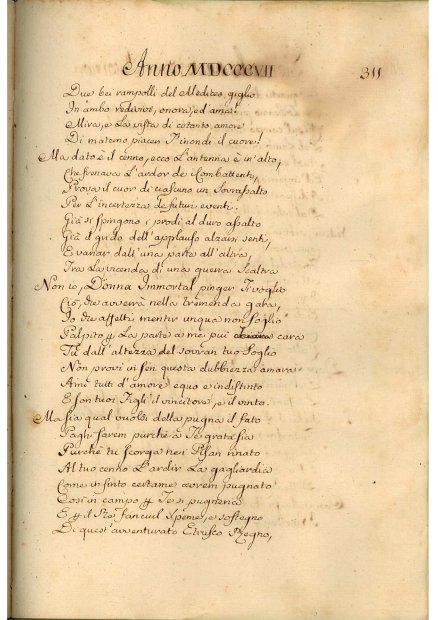 Anno MDCCCVII
311
Due bei rampolli del Mediceo giglio
In ambo vedervi, onora, ed ama!
Mira, e La vista di cotanto amore
Di materno piacer T'inondi il cuore!
Ma dato è il cenno, ecco L'antenna è in alto,
Che frenava L'ardor de' Combattenti,
Prova il cuor di ciascuno un Sovrassalto
Per L'incertezza de futuri eventi.
Già si spingono i prodi al duro assalto
Già il grido dell'applauso alzarsi senti,
E variar dall'una parte all'altra,
Tra La vicenda di una guerra Scaltra
Non io, Donna Immortal pinger Ti voglio
Ciò, che avverrà nella tremenda gara,
Io che affetti mentir unqua non soglio
Palpito p La parte a me più cara
Tu dall'altezza del sovran tuo Soglio
Non provi in sen questa dubbiezza amara
Ami tutti d'amore equo e indistinto
E son tuoi Figli il vincitore, e il vinto.
Ma sia qual vuolsi della pugna il fato
Paghi sarem purchè a Te grata sia
Purchè tu scorga nei Pisan rinato
Al tuo cenno L'ardir La gagliardia
Come in finto certame avrem pugnato
Così in campo p Te si pugneria
E p il Rè fanciul Speme, e sostegno
Di quest'avventurato Etrusco Regno,